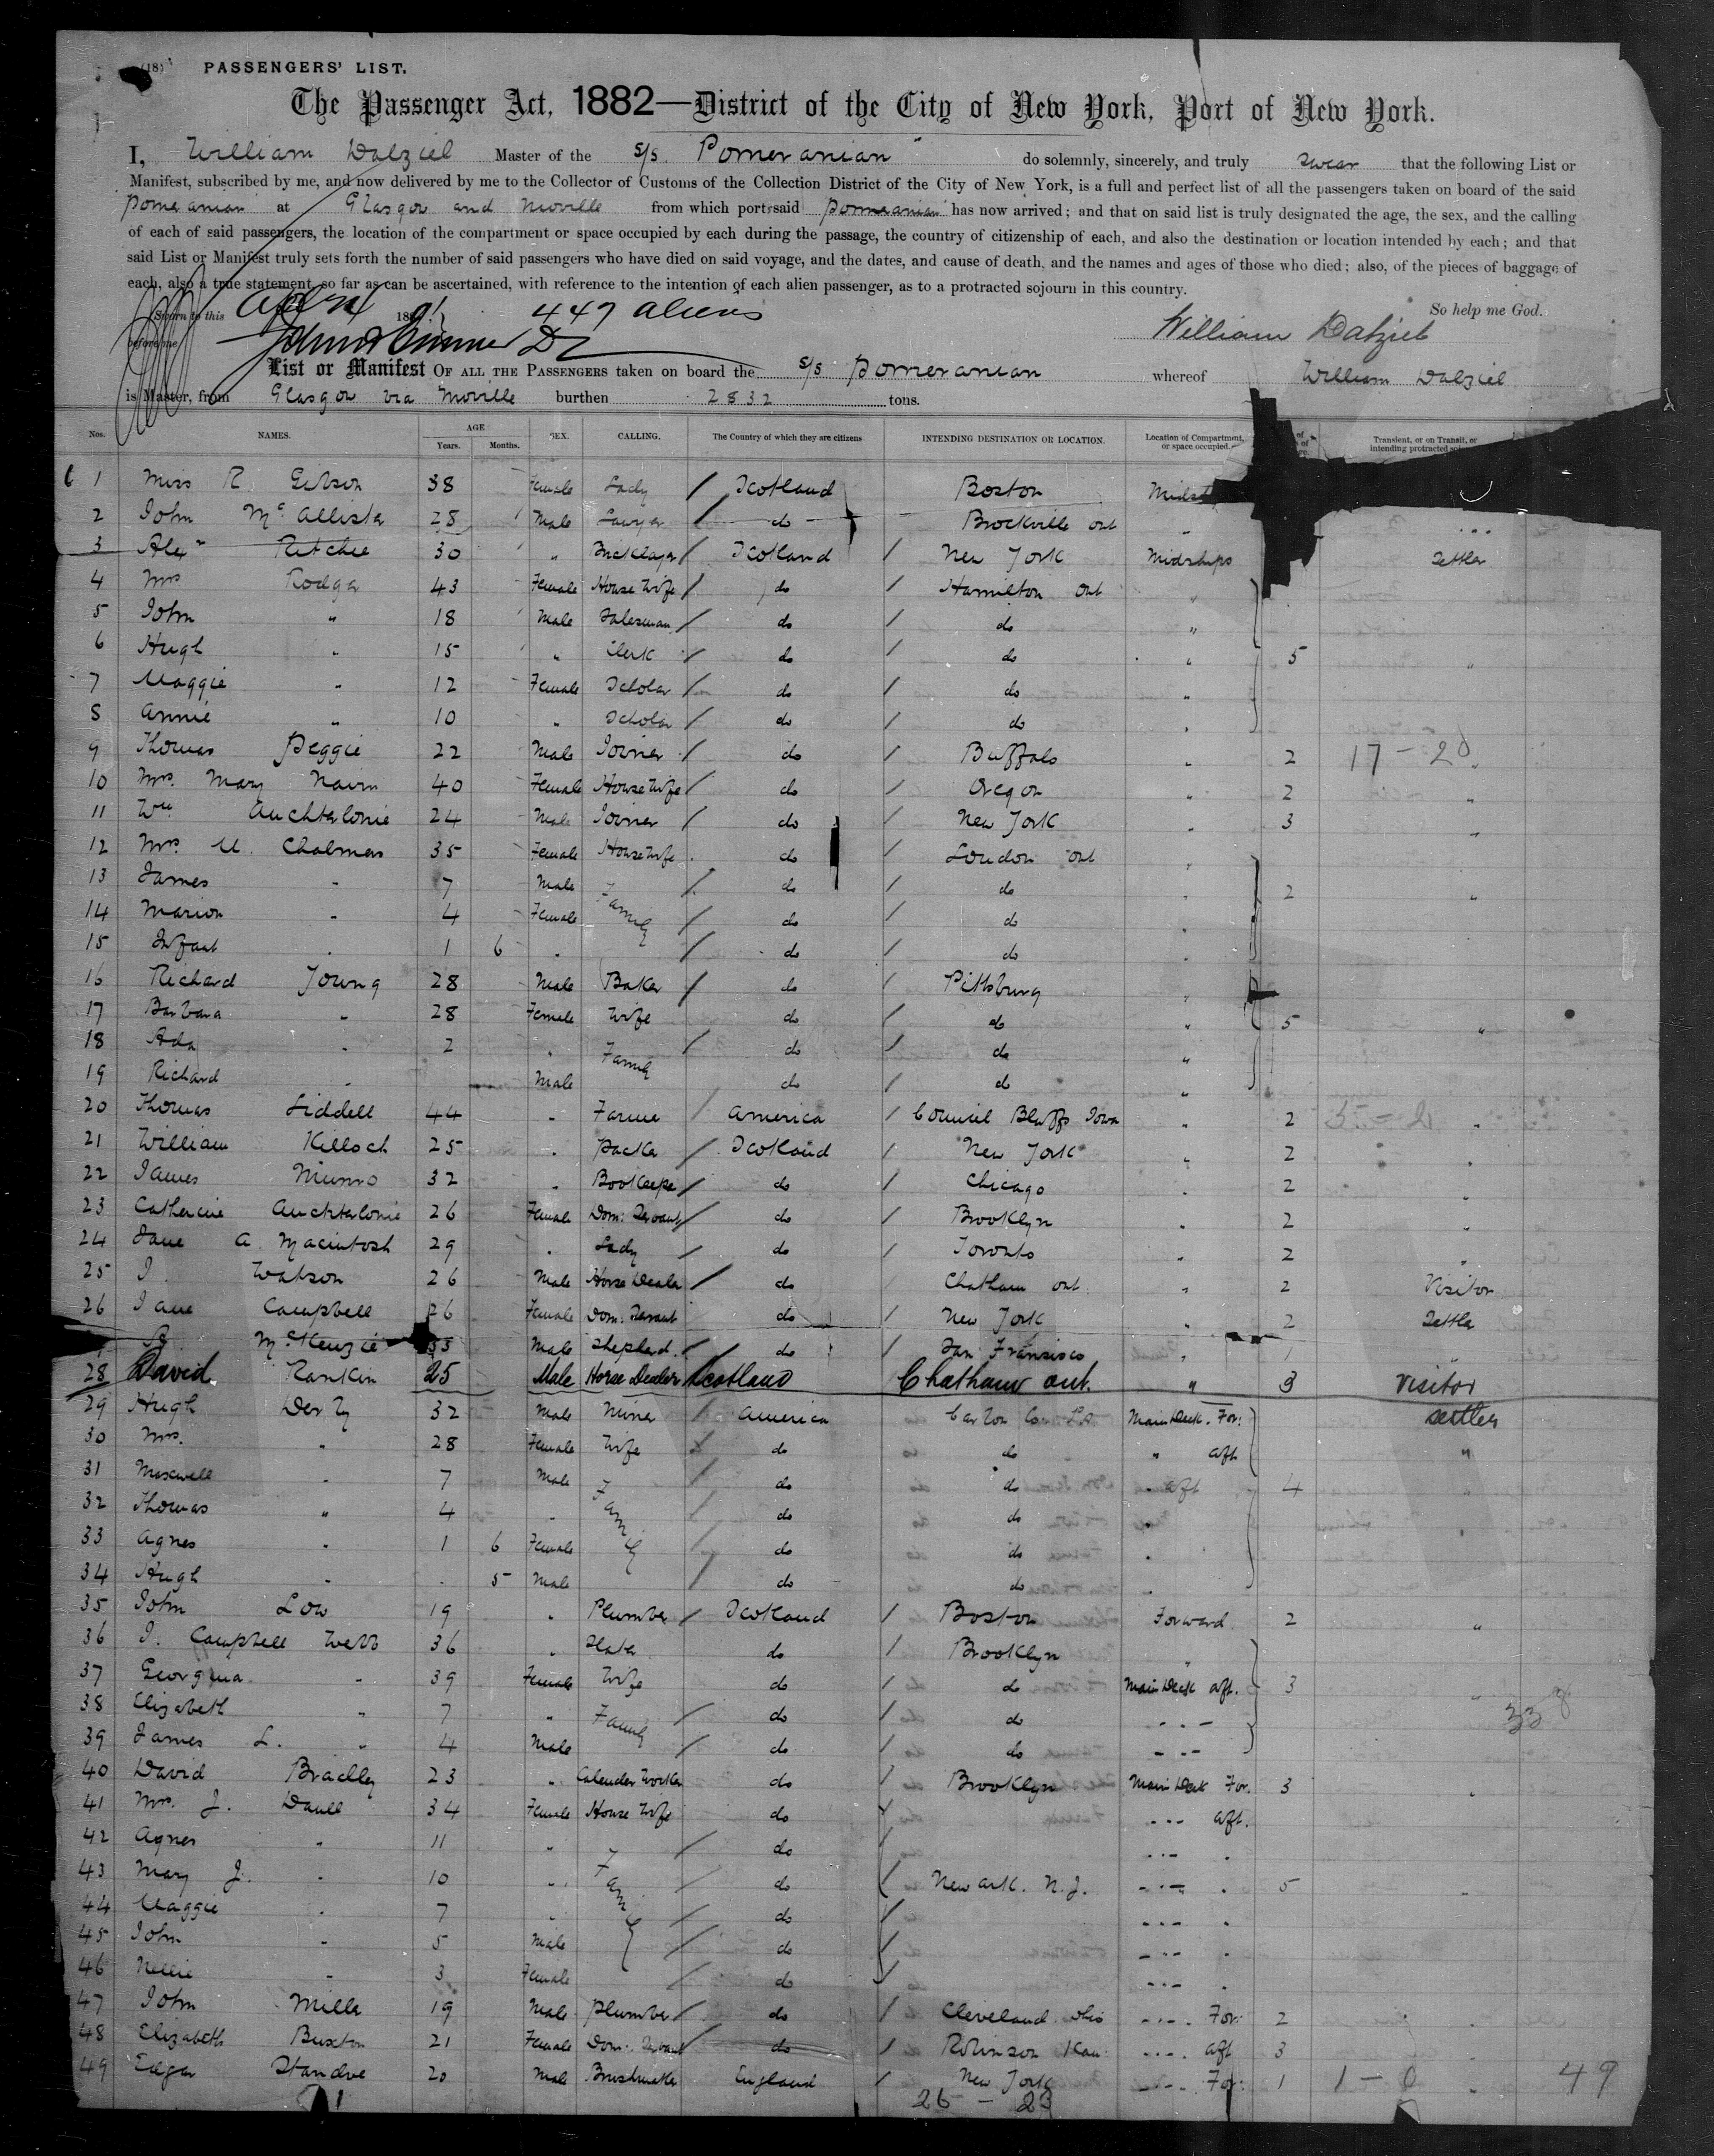 (18)
PASSENGERS' LIST.
The Passenger Act, 1882—District of the City of New York, Port of New York.
I, William Dalziel Master of the s/s. "Pomeranian" do solemnly, sincerely, and truly swear that the following List or
Manifest, subscribed by me, and now delivered by me to the Collector of Customs of the Collection District of the City of New York, is a full and perfect list of all the passengers taken on board of the said
Pomeranian at Glasgow and Moville from which port, said Pomeranian has now arrived; and that on said list is truly designated the age, the sex, and the calling
of each of said passengers, the location of the compartment or space occupied by each during the passage, the country of citizenship of each, and also the destination or location intended by each; and that
said List or Manifest truly sets forth the number of said passengers who have died on said voyage, and the dates, and cause of death, and the names and ages of those who died; also, of the pieces of baggage of
each, also a true statement, so far as can be ascertained, with reference to the intention of each alien passenger, as to a protracted sojourn in this country.
Sworn to this 189 447 aliens So help me God.
before me William Dalziel
List or Manifest OF ALL THE PASSENGERS taken on board the s/s Pomeranian whereof William Dalziel
is Master, from Glasgow via Moville burthen 2832 tons.
Nos. NAMES. AGE Years. Months. SEX. CALLING. The Country of which they are citizens. INTENDING DESTINATION OR LOCATION. Location of Compartment, or space occupied. Transient, or on Transit, or intending protracted
1 Miss R. Gibson 38 Female Lady / Scotland Boston
2 John McAllister 28 Male Lawyer / do Brockville Ont "
3 Alexr Ritchie 30 " Bricklayer / Scotland / New York Midships Settler
4 Mrs Rodger 43 Female House Wife / do / Hamilton Ont "
5 John " 18 Male Salesman / do / do "
6 Hugh " 15 " Clerk / do / do " 5 "
7 Maggie " 12 Female Scholar / do / do "
8 Annie " 10 " Scholar / do / do "
9 Thomas Peggie 22 Male Joiner / do / Buffalo " 2 17 - 20 "
10 Mrs. Mary Nairn 40 Female House Wife / do / Oregon " 2 "
11 Wm. Auchterlonie 24 Male Joiner / do / New York " 3 "
12 Mrs. M. Chalmers 35 Female House Wife do / London Ont "
13 James " 7 Male Family / do / do " 2 "
14 Marion " 4 Female / do / do "
15 Infant " 1 6 " / do / do "
16 Richard Young 28 Male Baker / do / Pittsburg "
17 Barbara " 28 Female Wife do / do " 5 "
18 Ada " 2 " Family / do / do "
19 Richard " Male do / do "
20 Thomas Liddell 44 " Farmer / America / Council Bluffs Iowa " 2 "
21 William Killoch 25 " Packer / Scotland / New York " 2 "
22 James Munro 32 " Bookeeper / do / Chicago " 2 "
23 Catherine Auchterlonie 26 Female Dom: Servant / do / Brooklyn " 2 "
24 Jane A. Macintosh 29 " Lady / do / Toronto " 2 "
25 J. Watson 26 Male Horse Dealer / do / Chatham Ont " 2 Visitor
26 Jane Campbell 26 Female Dom: Servant do / New York " 2 Settler
McKenzie 33 Male Shepherd / do / San Fransisco " 1 "
28 David Rankin 25 Male Horse Dealer Scotland Chatham Ont. " 3 Visitor
29 Hugh 32 Male Miner / America Main Deck. For: settler
30 Mrs. " 28 Female Wife do do " aft "
31 Maxwell " 7 Male Family / do do " aft 4 "
32 Thomas " 4 " / do do "
33 Agnes " 1 6 Female / do do "
34 Hugh " 5 Male / do do "
35 John Low 19 " Plumber / Scotland / Boston Forward 2 "
36 J. Campbell Webb 36 " Slater do / Brooklyn "
37 Georgina " 39 Female Wife do / do Main Deck aft. 3 "
38 Elizabeth " 7 " Family / do / do " " "
39 James L. " 4 Male / do / do " " "
40 David Bradley 23 " Calender Worker do / Brooklyn Main Deck For. 3 "
41 Mrs. J. 34 Female House Wife do / " " " aft.
42 Agnes " 11 " Family / do / " " " "
43 Mary J. " 10 " / do / Newark. N.J. " " " " 5 "
44 Maggie " 7 " / do / " " " "
45 John " 5 Male / do / " " " "
46 Nellie " 3 Female / do / " " " "
47 John Miller 19 Male Plumber / do / Cleveland Ohio " " " For: 2 "
48 Elizabeth Buxton 21 Female Dom: Servant / do / Robinson Kan: " " " aft 3 "
49 20 Male Brushmaker England / New York " " " For: 1 1 - 0 " 49
26 - 23